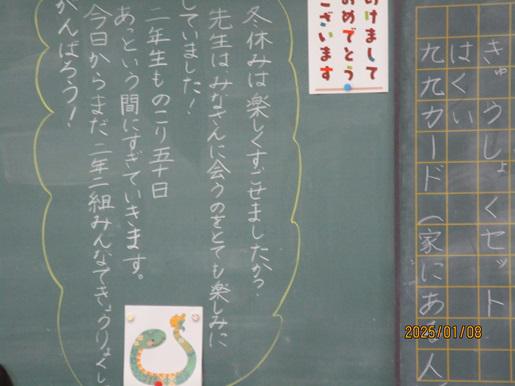 きゅうしょくセット
はくい
九九カード（家にある人
あけまして
おめでとう
ございます
冬休みは楽しくすごせましたか？
先生は、みなさんに会うのをとても楽しみに
していました！
二年生ものこり五十日
あっという間にすぎていきます。
今日からまた、二年一組みんなできょうりょくし
がんばろう！
2025/01/08